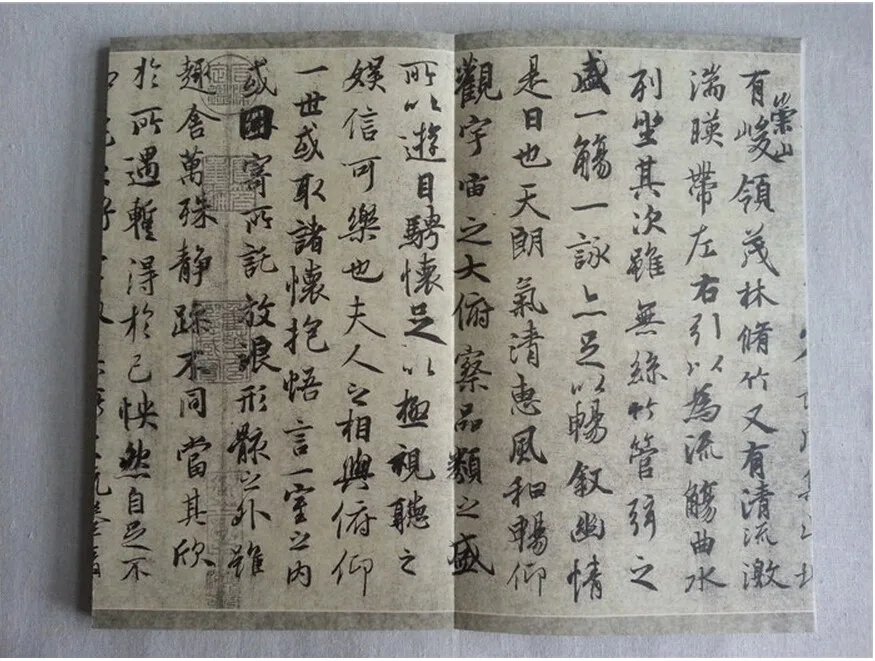 崇山
有峻領茂林脩竹又有清流激
湍暎帶左右引以為流觴曲水
列坐其次雖無絲竹管弦之
盛一觴一詠亦足以暢敘幽情
是日也天朗氣清惠風和暢仰
觀宇宙之大俯察品類之盛
所以遊目騁懷足以極視聽之
娛信可樂也夫人之相與俯仰
一世或取諸懷抱悟言一室之內
或因寄所託放浪形骸之外雖
趣舍萬殊靜躁不同當其欣
於所遇暫得於己怏然自足不